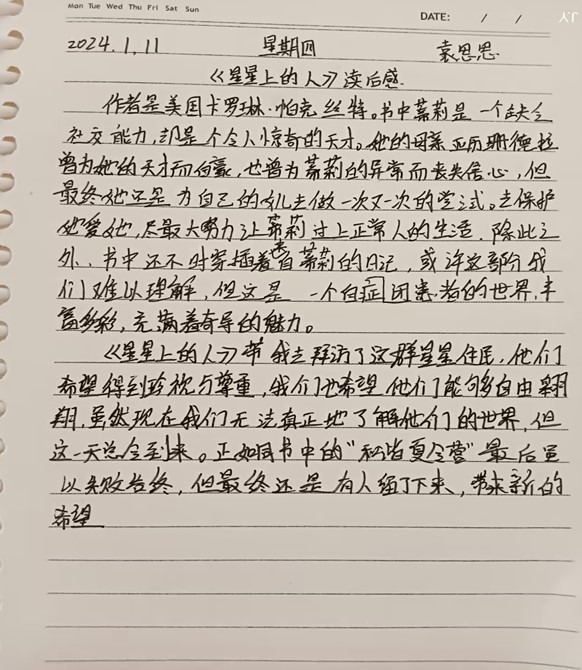 Mon Tue Wed Thu Fri Sat Sun
DATE: / /
2024.1.11 星期四 袁思思
《星星上的人》读后感
作者是美国卡罗琳·帕克丝特。书中蒂莉是一个缺乏
社交能力,却是个令人惊奇的天才。她的母亲亚历珊德拉
曾为她的天才而自豪,也曾为蒂莉的异常而丧失信心,但
最终她还是为自己的女儿去做一次又一次的尝试。去保护
她爱她,尽最大努力让蒂莉过上正常人的生活。除此之
外、书中还不时穿插着来自蒂莉的日记,或许这部分我
们难以理解,但这是一个自症闭患者的世界,丰
富多彩,充满着奇异的魅力。
《星星上的人》带我去拜访了这群星星住民,他们
希望得到珍视与尊重,我们也希望他们能够自由翱
翔,虽然现在我们无法真正地了解他们的世界,但
这一天总会到来。正如同书中的“私皆夏令营”最后虽
以失败告终,但最终还是有人留了下来,带来新的
希望